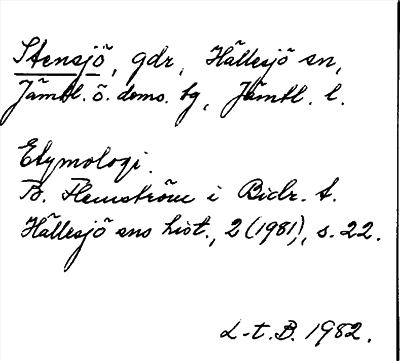 Stensjö, gdr, Hällesjö sn,
Jämtl. ö. doms. tg, Jämtl. l.
Etymologi.
B. Flemström i Bidr. t.
Hällesjö sns hist., 2 (1981), s. 22.
L-t. B. 1982.